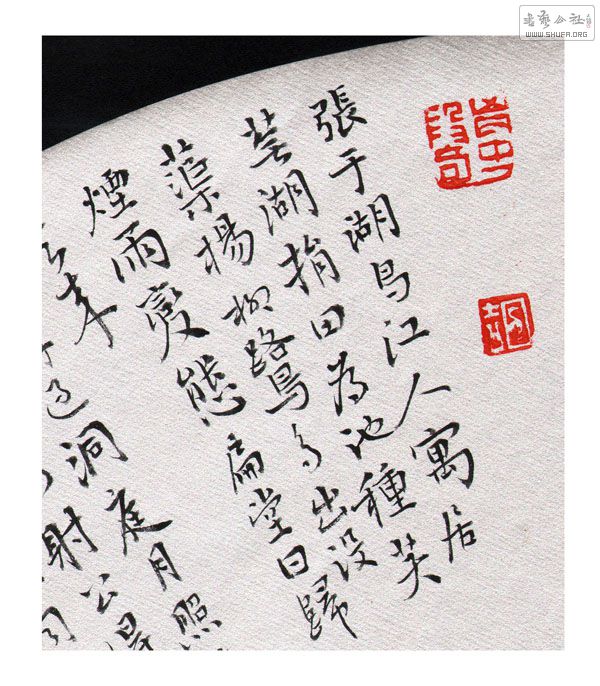 書藝公社
WWW.SHUFA.ORG
張于湖烏江人寓居
芜湖捐田為池種芙
蕖揚柳鷺出没
煙雨變態扁堂曰歸
来過洞庭月照
射公得